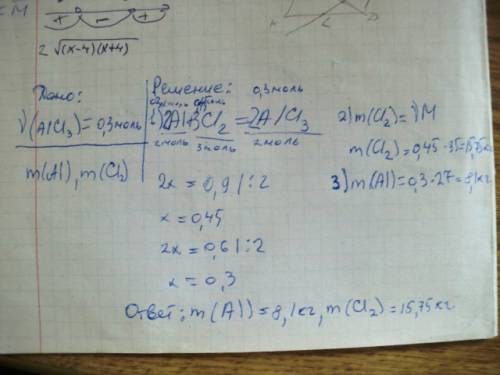 = M
+ − +
2 √(x-4)(x+4)
A L D
Дано:
ν(AlCl₃)=0,3моль
m(Al), m(Cl₂)
Решение:
0,3моль
1) 2Al+3Cl₂ = 2AlCl₃
2моль 3моль 2моль
2x = 0,9 | :2
x = 0,45
2x = 0,6 | :2
x = 0,3
2) m(Cl₂) = νM
m(Cl₂) = 0,45 · 35 = 15,75кг
3) m(Al) = 0,3 · 27 = 8,1кг
Ответ: m(Al) = 8,1кг, m(Cl₂) = 15,75кг